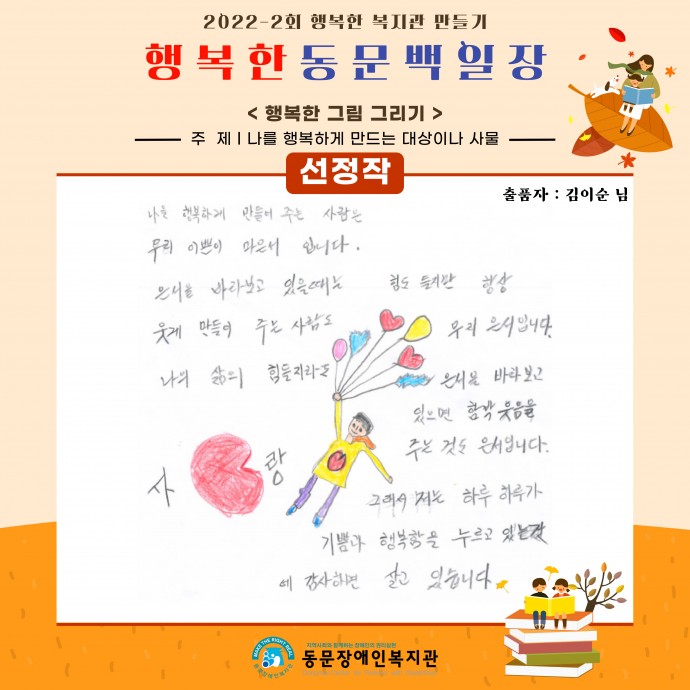 2022-2회 행복한 복지관 만들기
행복한동문백일장
< 행복한 그림 그리기 >
주 제 I 나를 행복하게 만드는 대상이나 사물
선정작
출품자 : 김이순 님
나를 행복하게 만들어 주는 사람은
우리 이쁜이 입니다.
은서를 바라보고 있을때는 힘도 들지만 항상
웃게 만들어 주는 사람도 우리 은서입니다.
나의 삶의 힘들지라도 은서를 바라보고
있으면 함박 웃음을
주는 것도 은서입니다.
사 랑
그래서 저는 하루 하루가
기쁨과 행복함을 누르고
에 감사하면 살고 있습니다.
지역사회와 함께하는 장애인의 권리실현
MAKE THE RIGHT REAL
동문장애인복지관
동문장애인복지관